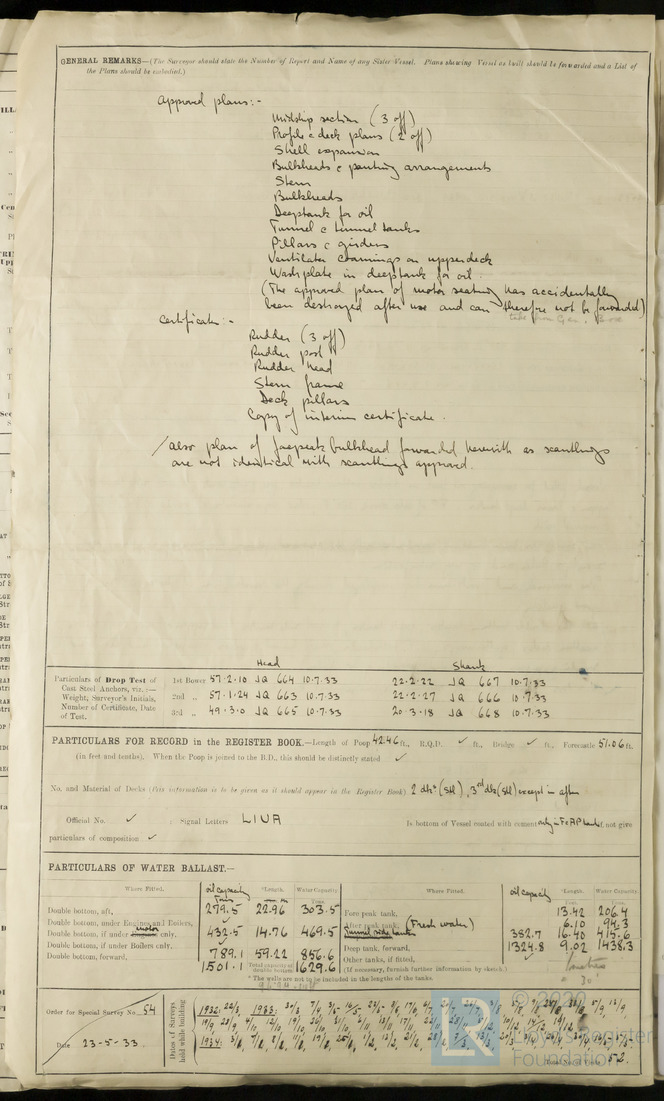 GENERAL REMARKS—(The Surveyor should state the Number of Report and Name of any Sister Vessel. Plans showing Vessel as built should be forwarded and a List of
the Plans should be embodied.)
Approved plans:-
Midship section (3 off)
Profile & deck plans (2 off)
Shell expansion
Bulkheads & panting arrangements
Stem
Bulkheads
Deeptank for oil
Tunnel & tunnel tanks
Pillars & girders
Ventilator coamings on upperdeck
Washplate in deeptank for oil.
(The approved plan of motor seating has accidentally
been destroyed after use and can therefore not be forwarded)
Certificate:-
Rudder (3 off)
Rudder post
Rudder head
Stern frame
Deck pillars
Copy of interim certificate.
Also plan of forepeak bulkhead forwarded herewith as scantlings
are not identical with scantlings approved.
Head Shank
Particulars of Drop Test of
Cast Steel Anchors, viz.:—
Weight, Surveyor's Initials,
Number of Certificate, Date
of Test.
1st Bower 57·2·10 JQ 664 10·7·33 22·2·22 JQ 667 10·7·33
2nd „ 57·1·24 JQ 663 10·7·33 22·2·27 JQ 666 10·7·33
3rd „ 49·3·0 JQ 665 10·7·33 20·3·18 JQ 668 10·7·33
PARTICULARS FOR RECORD in the REGISTER BOOK.—Length of Poop 42.46 ft., R.Q.D. ✓ ft., Bridge ✓ ft., Forecastle 51.06 ft.
(in feet and tenths). When the Poop is joined to the B.D., this should be distinctly stated ✓
No. and Material of Decks (This information is to be given as it should appear in the Register Book) 2 dks (Stl), 3rd dk (Stl) except in after
Official No. ✓ ; Signal Letters LIUA Is bottom of Vessel coated with cement only in F&AP tanks if not give
particulars of composition ✓
PARTICULARS OF WATER BALLAST.—
Where Fitted. oil capacity Tons *Length. Water Capacity. Tons.
Double bottom, aft, 279.5 22.96 303.5
Double bottom, under Engines and Boilers, ✓
Double bottom, if under motor only, 432.5 14.76 469.5
Double bottom, if under Boilers only, ✓
Double bottom, forward, 789.1 59.22 856.6
1501.1 Total capacity of double bottom 1629.6
Where Fitted. oil capacity *Length. Water Capacity. Tons.
Fore peak tank, 13.42 206.4
After peak tank, (Fresh water) 6.10 94.3
382.7 16.40 415.6
Deep tank, forward, 1324.8 9.02 1438.3
Other tanks, if fitted,
(If necessary, furnish further information by sketch.)
* The wells are not to be included in the lengths of the tanks.
Order for Special Survey No. 54
Date 23-5-33
Dates of Surveys
held while building
1932:
1933:
1934:
Total No. of Visits 52.
LR
Lloyd's Register
Foundation